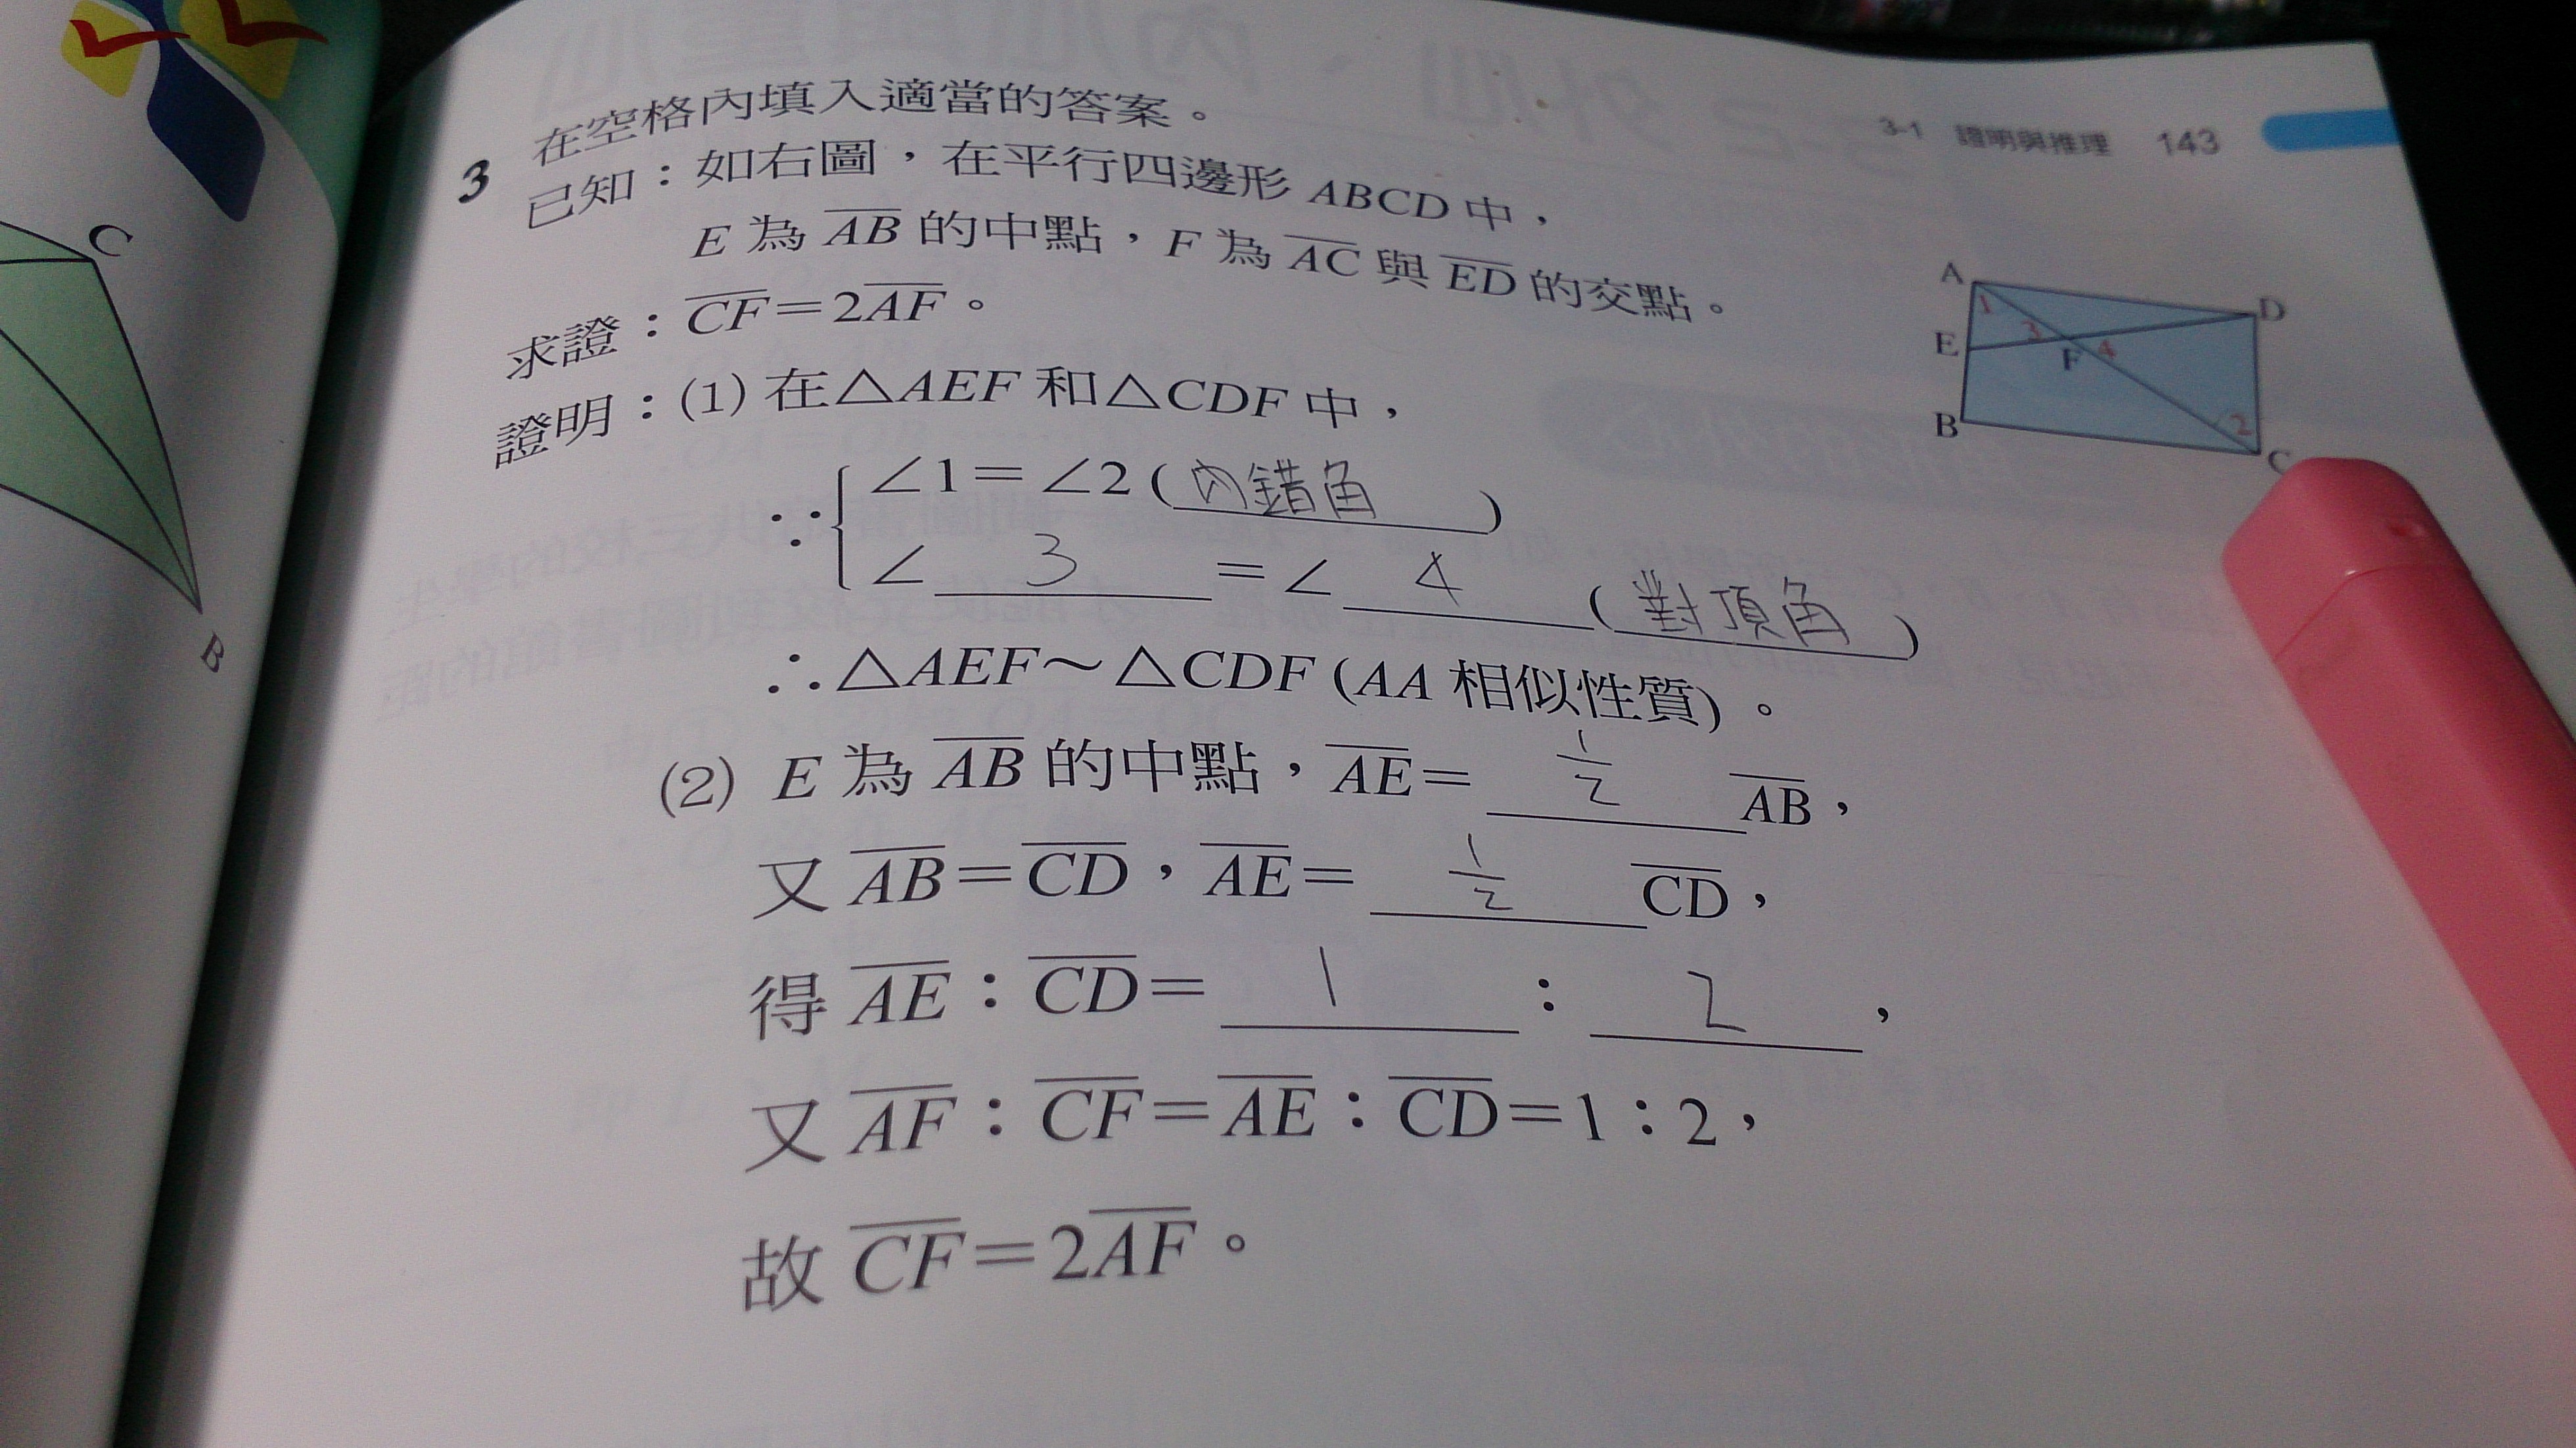 C
B
3-1 證明與推理 143
3 在空格內填入適當的答案。
已知：如右圖，在平行四邊形 ABCD 中，
E 為 AB 的中點，F 為 AC 與 ED 的交點。
求證：CF=2AF。
A
D
E
F
B
C
1
3
4
2
證明：(1) 在△AEF 和△CDF 中，
∵ ∠1=∠2 (內錯角)
∠ 3 =∠ 4 (對頂角)
∴△AEF～△CDF (AA 相似性質)。
(2) E 為 AB 的中點，AE= 1/2 AB，
又 AB=CD，AE= 1/2 CD，
得 AE：CD= 1 ： 2 ，
又 AF：CF=AE：CD=1：2，
故 CF=2AF。